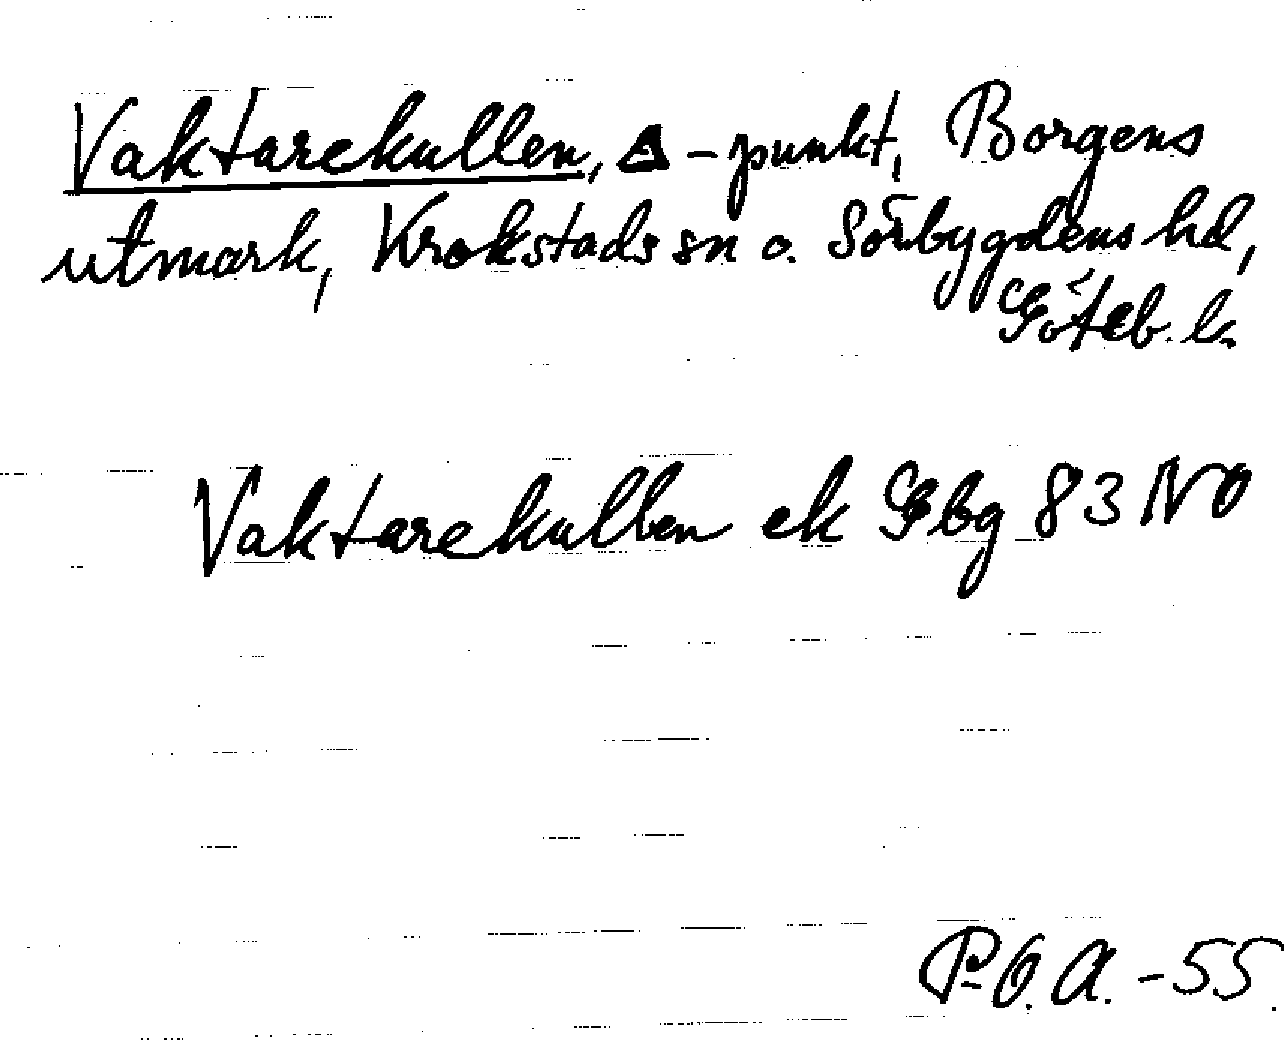 Vaktarekullen, Δ-punkt, Borgens
utmark, Krokstads sn o. Sörbygdens hd,
Göteb. l.
Vaktarekullen ek Gbg 83 NO
P.O.A. -55.